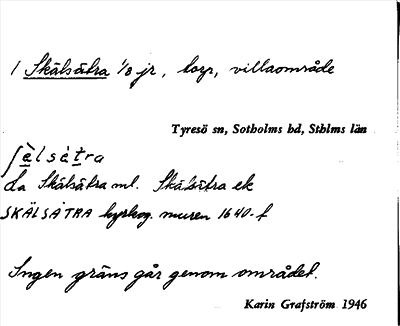 1 Skälsätra 1/8 jr, torp, villaområde
Tyresö sn, Sotholms hd, Sthlms län
ʃèlsè̀tra
La Skälsätra ml. Skälsätra ek
SKÄLSÄTRA kyrkog. muren 1640-t
Ingen gräns går genom området.
Karin Grafström 1946